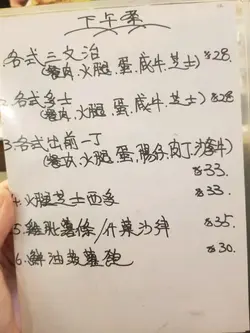 下午茶
1. 各式三文治
(餐肉.火腿.蛋.咸牛.芝士) $28.
2. 各式多士
(餐肉.火腿.蛋.咸牛.芝士) $28
3. 各式出前一丁
(餐肉.火腿.蛋.腸仔.肉丁.沙爹牛)
$33.
4. 火腿芝士西多 $33.
5. 雞肶薯條/什菜沙律 $35.
6. 鮮油菠蘿飽 $30.